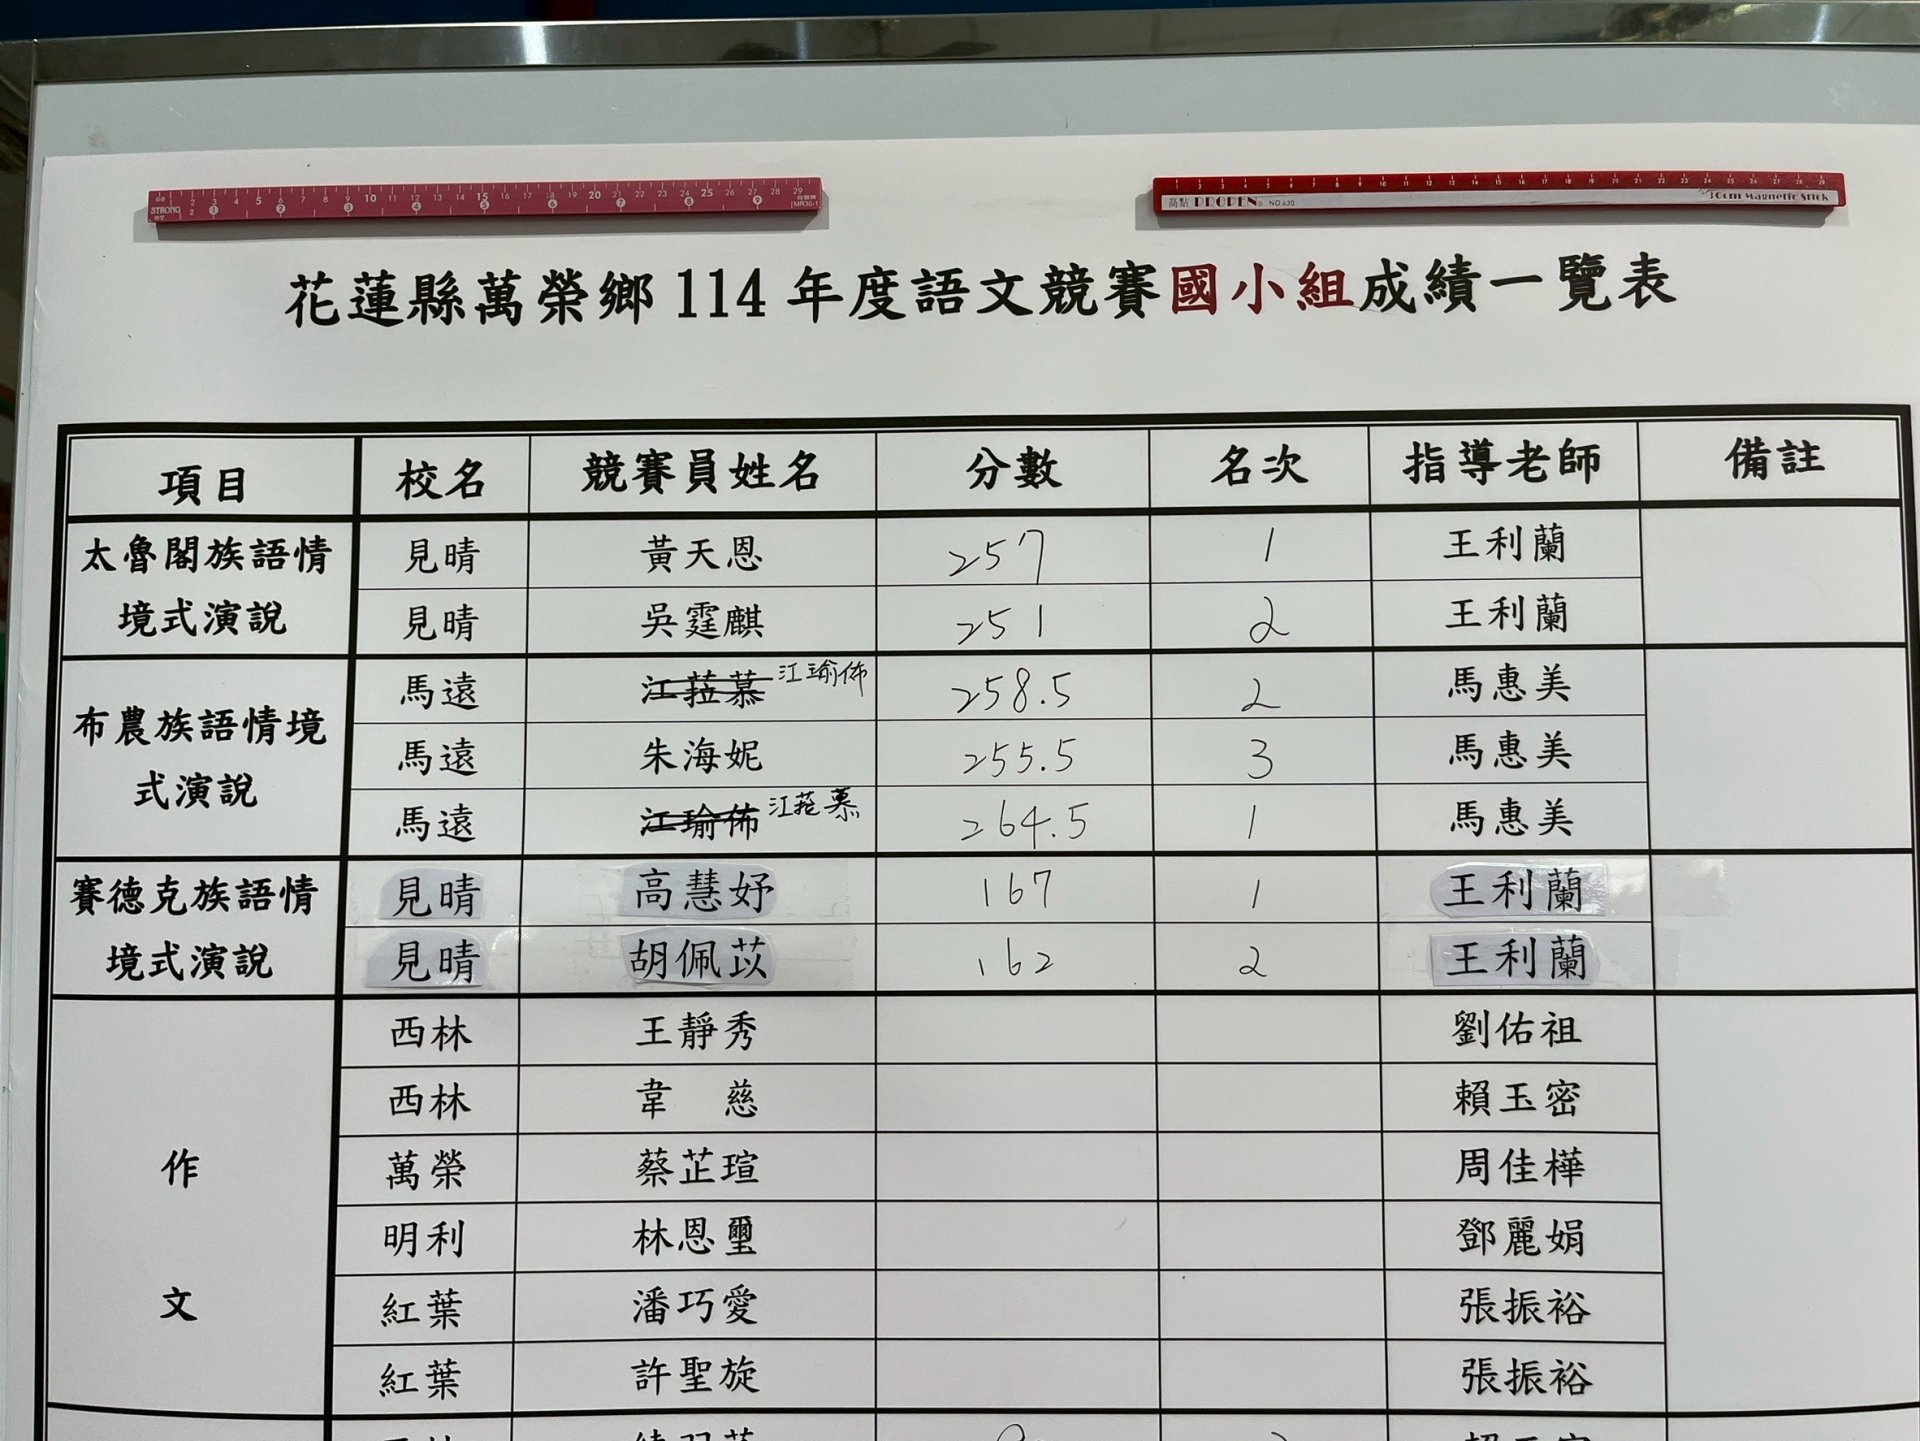 STRONG 5 10 15 20 25 MR30-1
高點 PROPEN NO.630 30cm Magnetic Stick
花蓮縣萬榮鄉 114 年度語文競賽國小組成績一覽表
項目 校名 競賽員姓名 分數 名次 指導老師 備註
太魯閣族語情境式演說 見晴 黃天恩 257 1 王利蘭
見晴 吳霆麒 251 2 王利蘭
布農族語情境式演說 馬遠 江菈慕 江瑜佈 258.5 2 馬惠美
馬遠 朱海妮 255.5 3 馬惠美
馬遠 江瑜佈 江菈慕 264.5 1 馬惠美
賽德克族語情境式演說 見晴 高慧妤 167 1 王利蘭
見晴 胡佩苡 162 2 王利蘭
作文 西林 王靜秀 劉佑祖
西林 韋慈 賴玉密
萬榮 蔡芷瑄 周佳樺
明利 林恩璽 鄧麗娟
紅葉 潘巧愛 張振裕
紅葉 許聖旋 張振裕